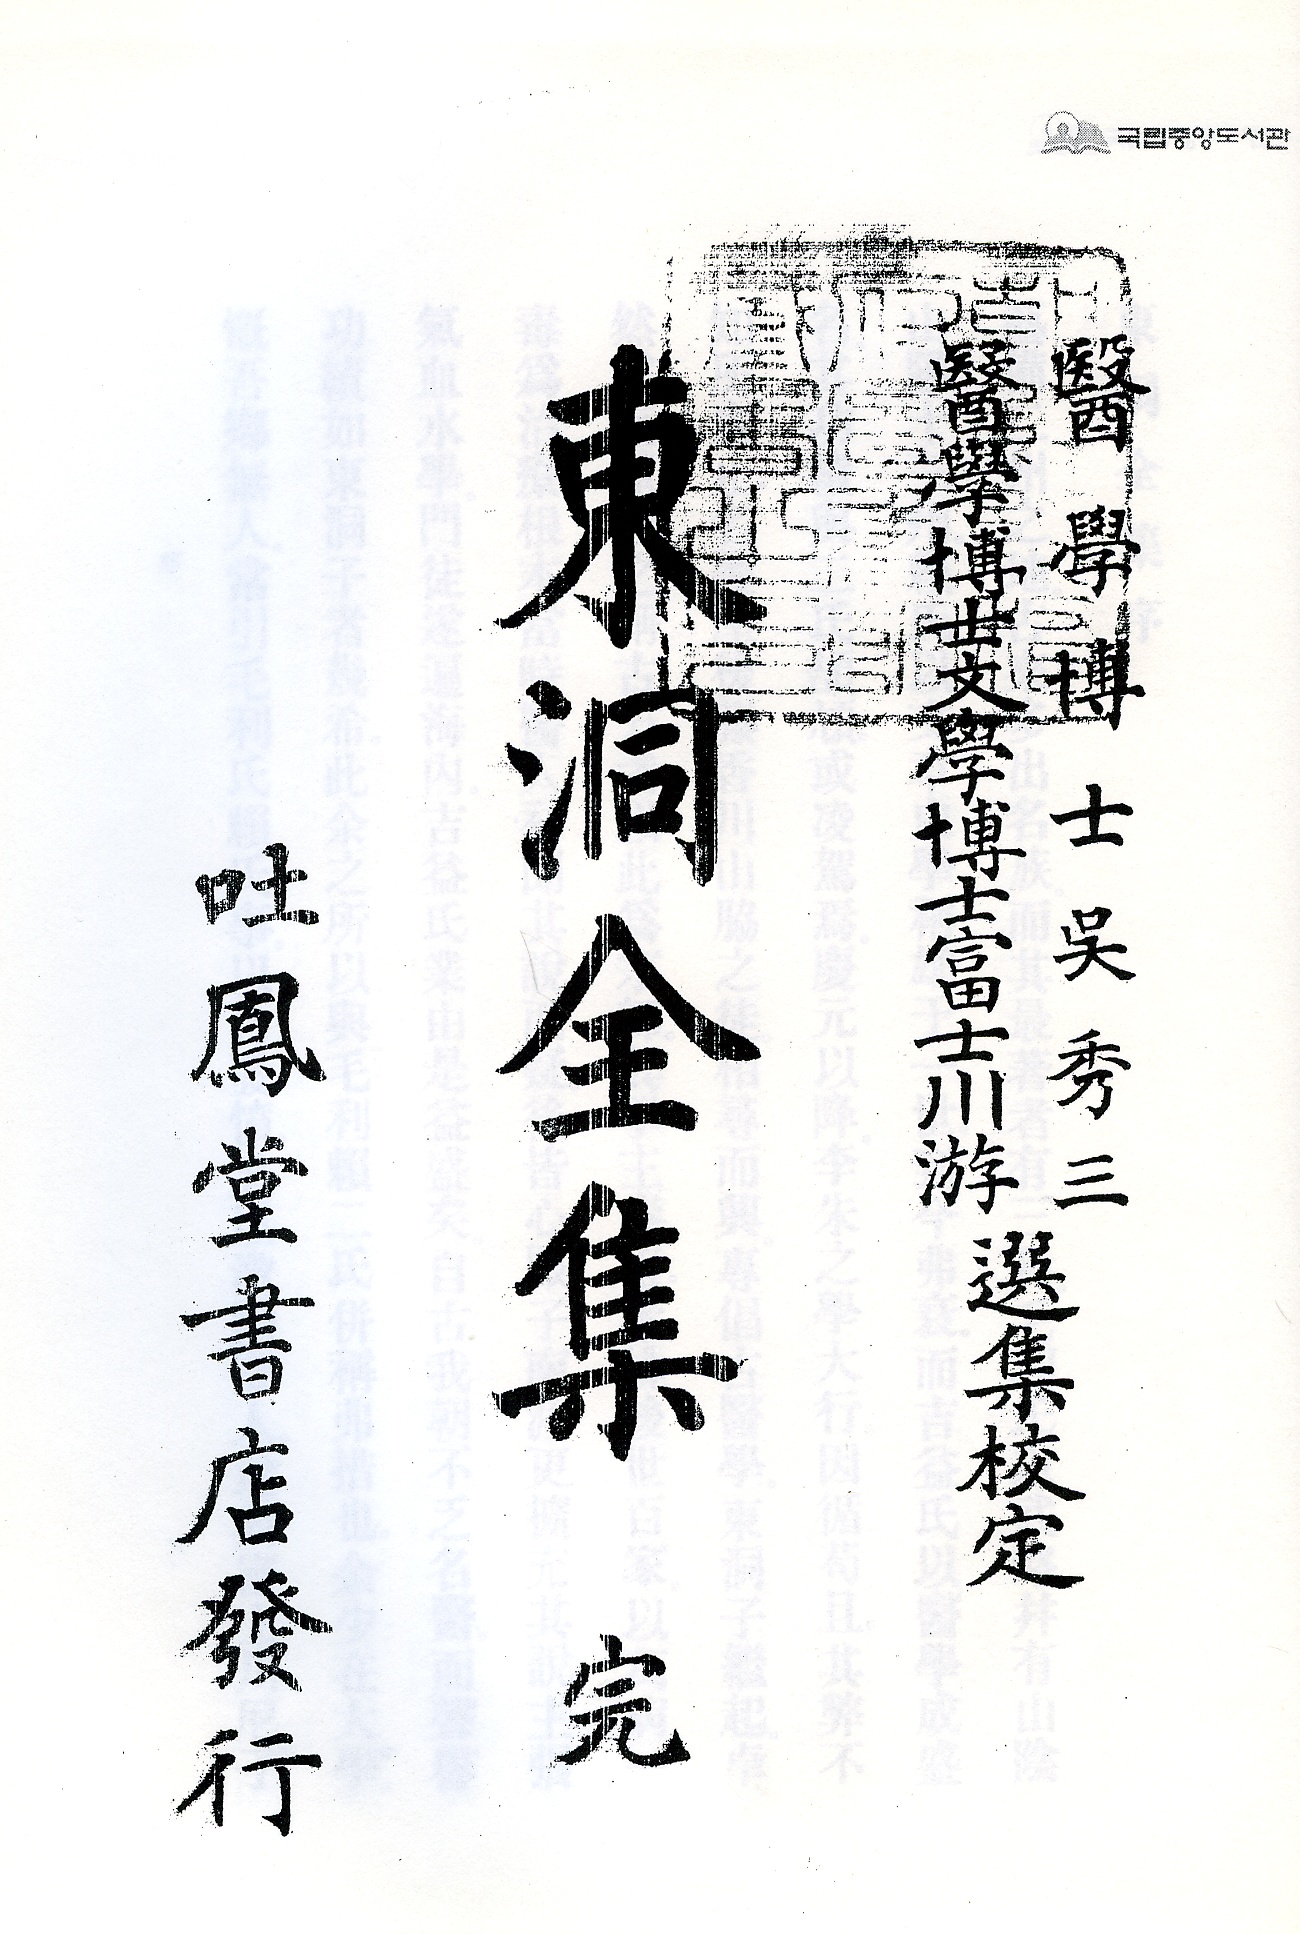 국립중앙도서관
醫學博士吳秀三
醫學博士文學博士富士川游
選集校定
東洞全集 完
吐鳳堂書店發行